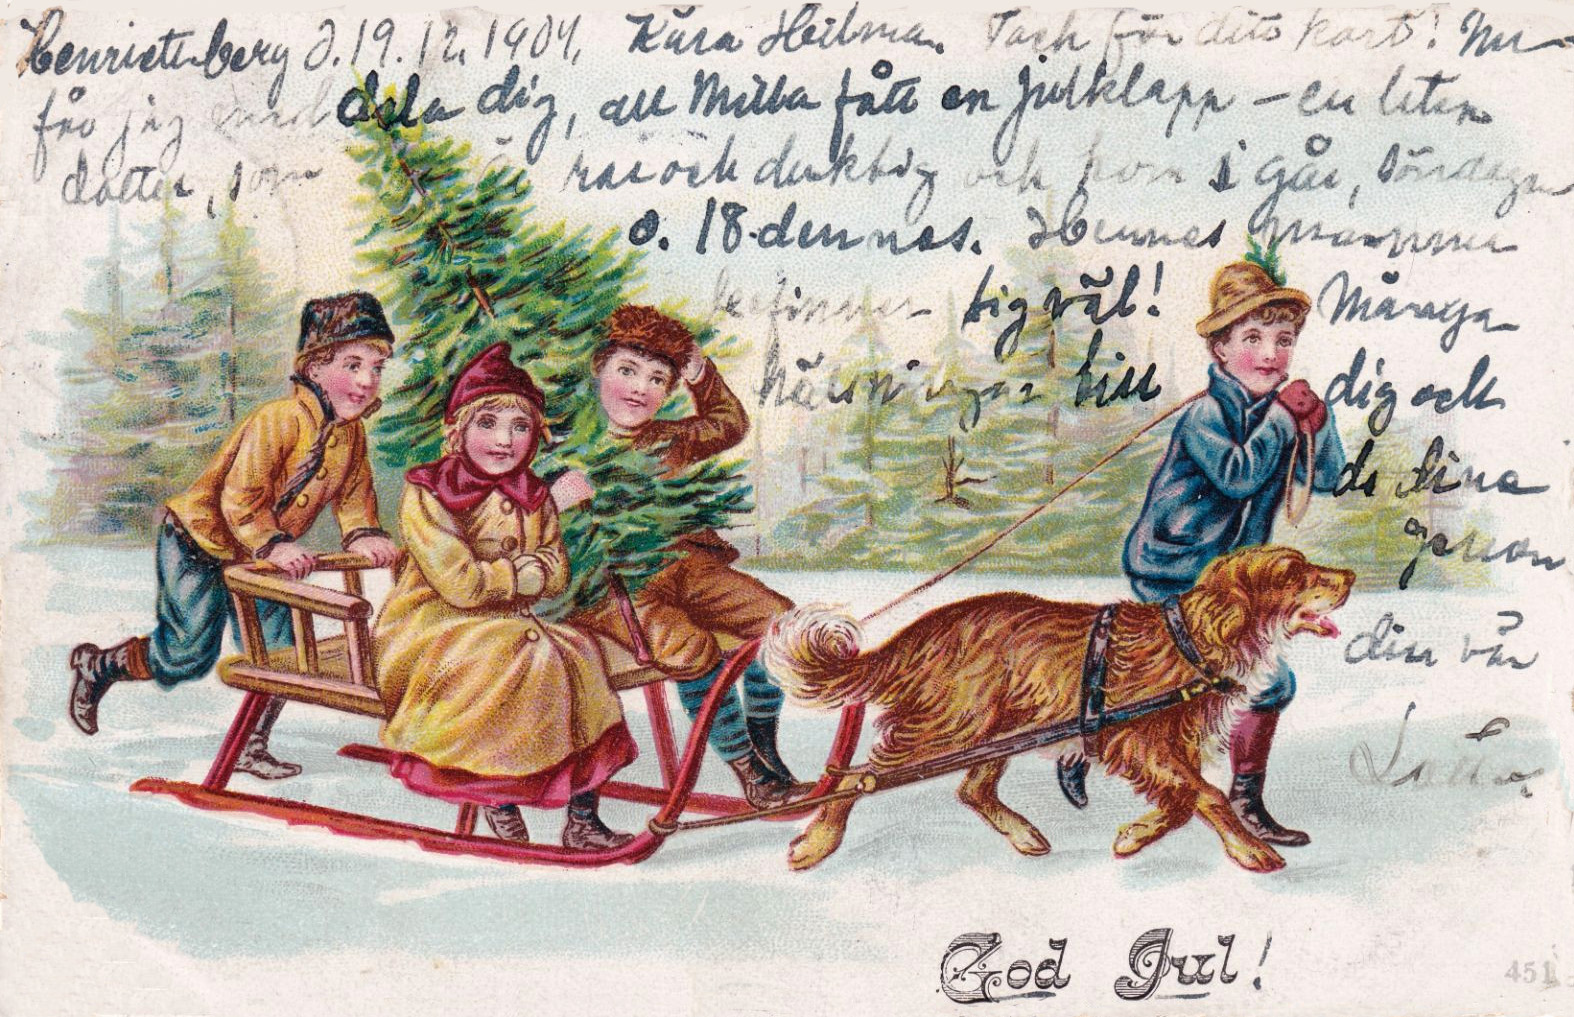 Henrietteberg d. 19.12. 1904. Kära Hilma. Tack för ditt kort! Nu
får jag meddela dig, att Milla fått en julklapp – en liten
dotter, som är rar och duktig och kom i går, söndagen
d. 18-dennes. Hennes mamma
befinner sig väl! Många
hälsningar till dig och
de dina
genom
din vän
God Jul!
451